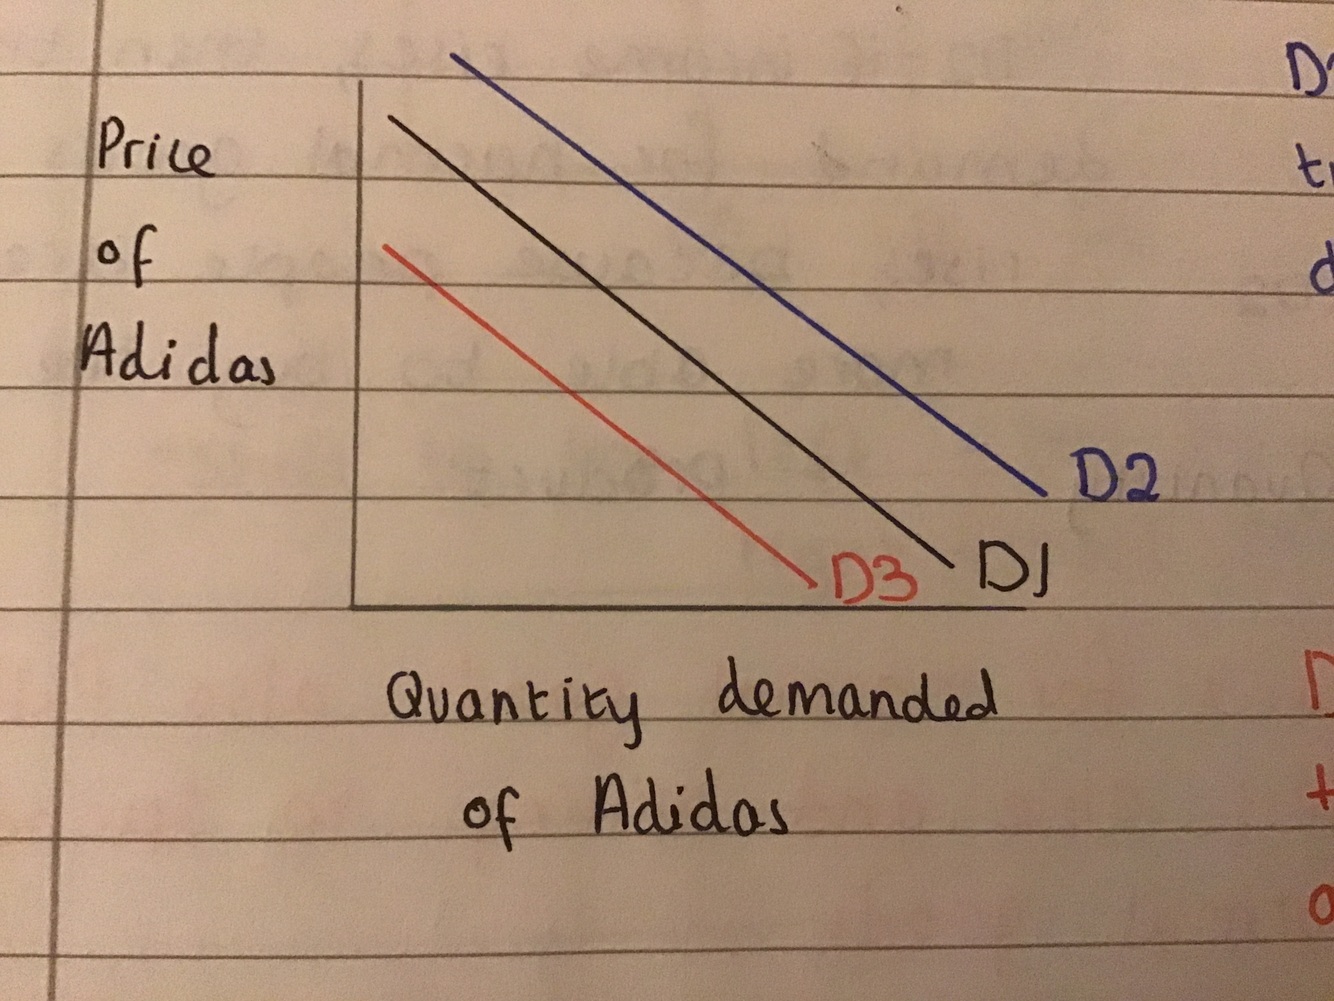 Price
of
Adidas
D2
D1
D3
Quantity demanded
of Adidas